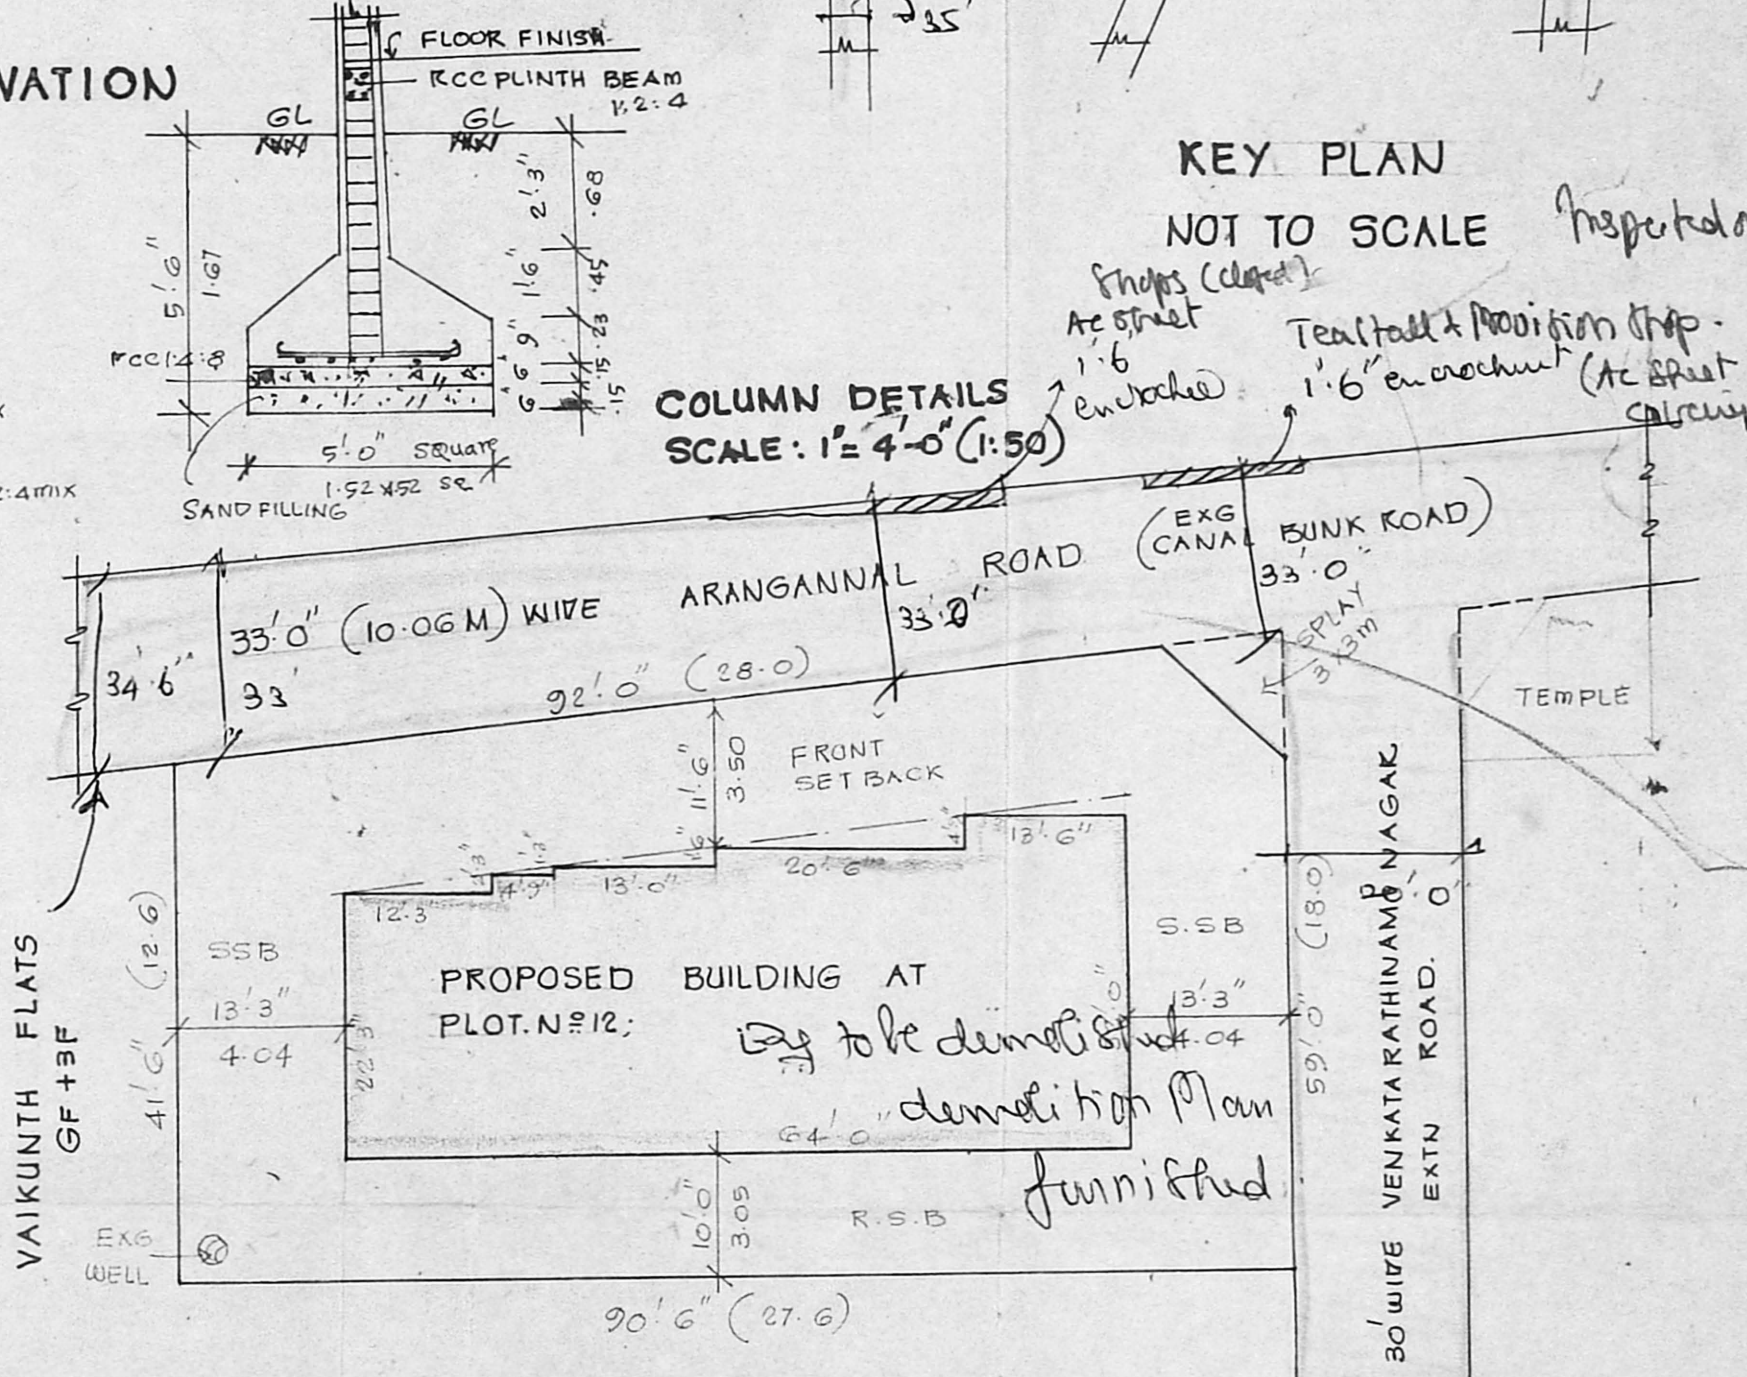 VATION
FLOOR FINISH
RCC PLINTH BEAM
1:2:4
GL
GL
5'.6"
1.67
2'.3"
.68
1'.6"
.45
9"
.23
6"
.15
6"
.15
PCC 1:4:8
5'.0" SQUARE
1.52 X 1.52 SQ
SAND FILLING
2:4 MIX
COLUMN DETAILS
SCALE : 1" = 4'-0" (1:50)
35'
KEY PLAN
NOT TO SCALE
Inspected
Shops (closed)
Ac sheet
1'.6"
encroched
Teastall & Provision shop.
1'.6" encrochment (Ac sheet
34'.6"
33'.0" (10.06 M) WIDE ARANGANNAL ROAD (EXG
CANAL BUNK ROAD)
33'
33'.0"
33'.0"
92'.0" (28.0)
SPLAY
3 x 3m
TEMPLE
11'.6"
3.50
FRONT
SET BACK
12'.3"
4'.9"
13'.0"
20'.6"
13'.6"
SSB
13'.3"
4.04
22'.3"
41'.6" (12.6)
PROPOSED BUILDING AT
PLOT. No 12;
to be demolished
demolition Plan
furnished
S.SB
13'.3"
4.04
59'.0" (18.0)
64'.0"
10'.0"
3.05
R.S.B
EXG
WELL
90'.6" (27.6)
VAIKUNTH FLATS
GF+3F
30' WIDE VENKATARATHINAM NAGAR
EXTN ROAD.